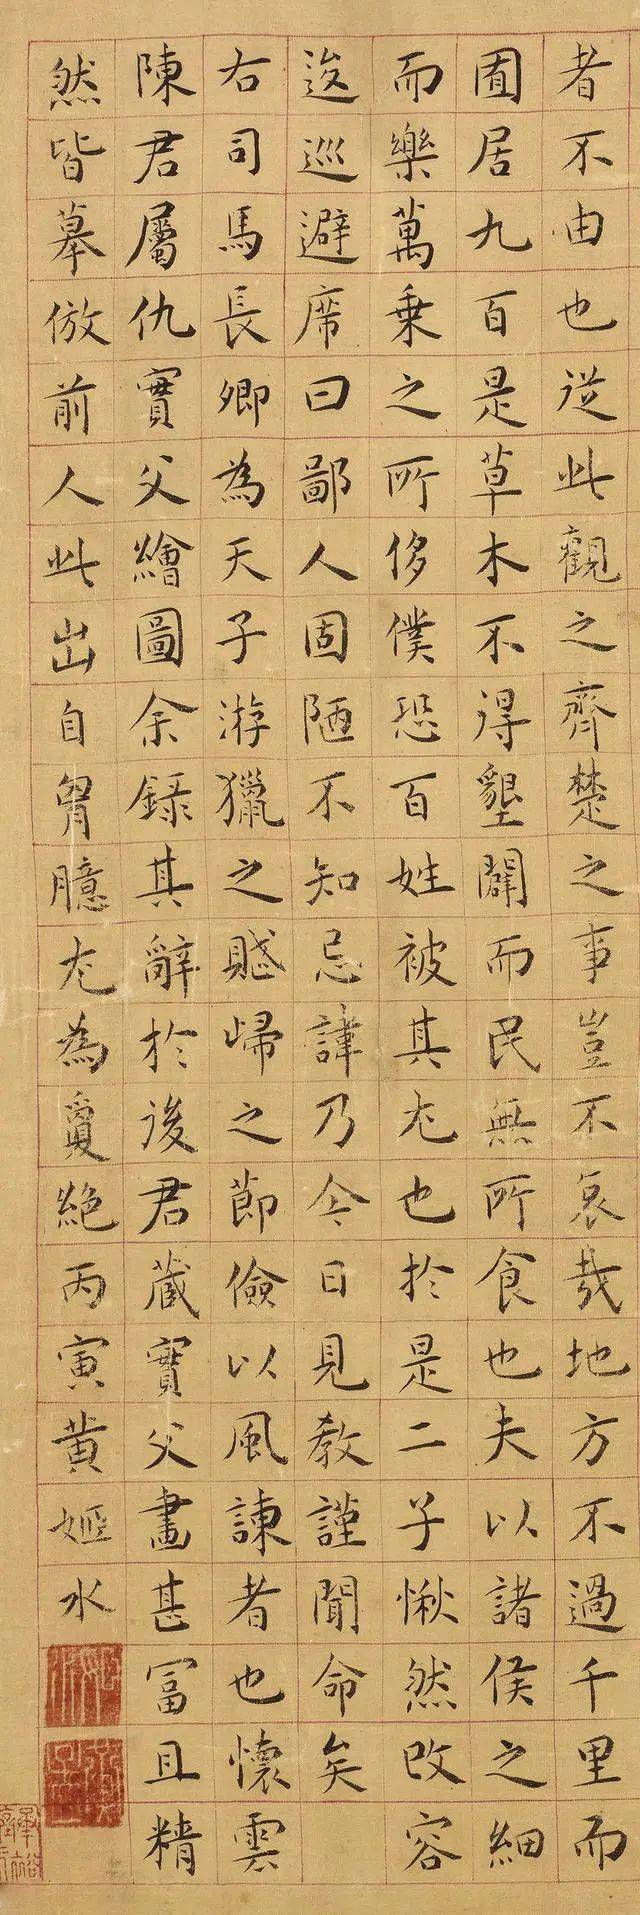 者不由也從此觀之齊楚之事豈不哀哉地方不過千里而
囿居九百是草木不得墾闢而民無所食也夫以諸侯之細
而樂萬乘之所侈僕恐百姓被其尤也於是二子愀然改容
逡巡避席曰鄙人固陋不知忌諱乃今日見教謹聞命矣
右司馬長卿為天子游獵之賦歸之節儉以風諫者也懷雲
陳君屬仇實父繪圖余錄其辭於後君藏實父畫甚富且精
然皆摹倣前人此出自胷臆尤為敻絕丙寅黃姬水